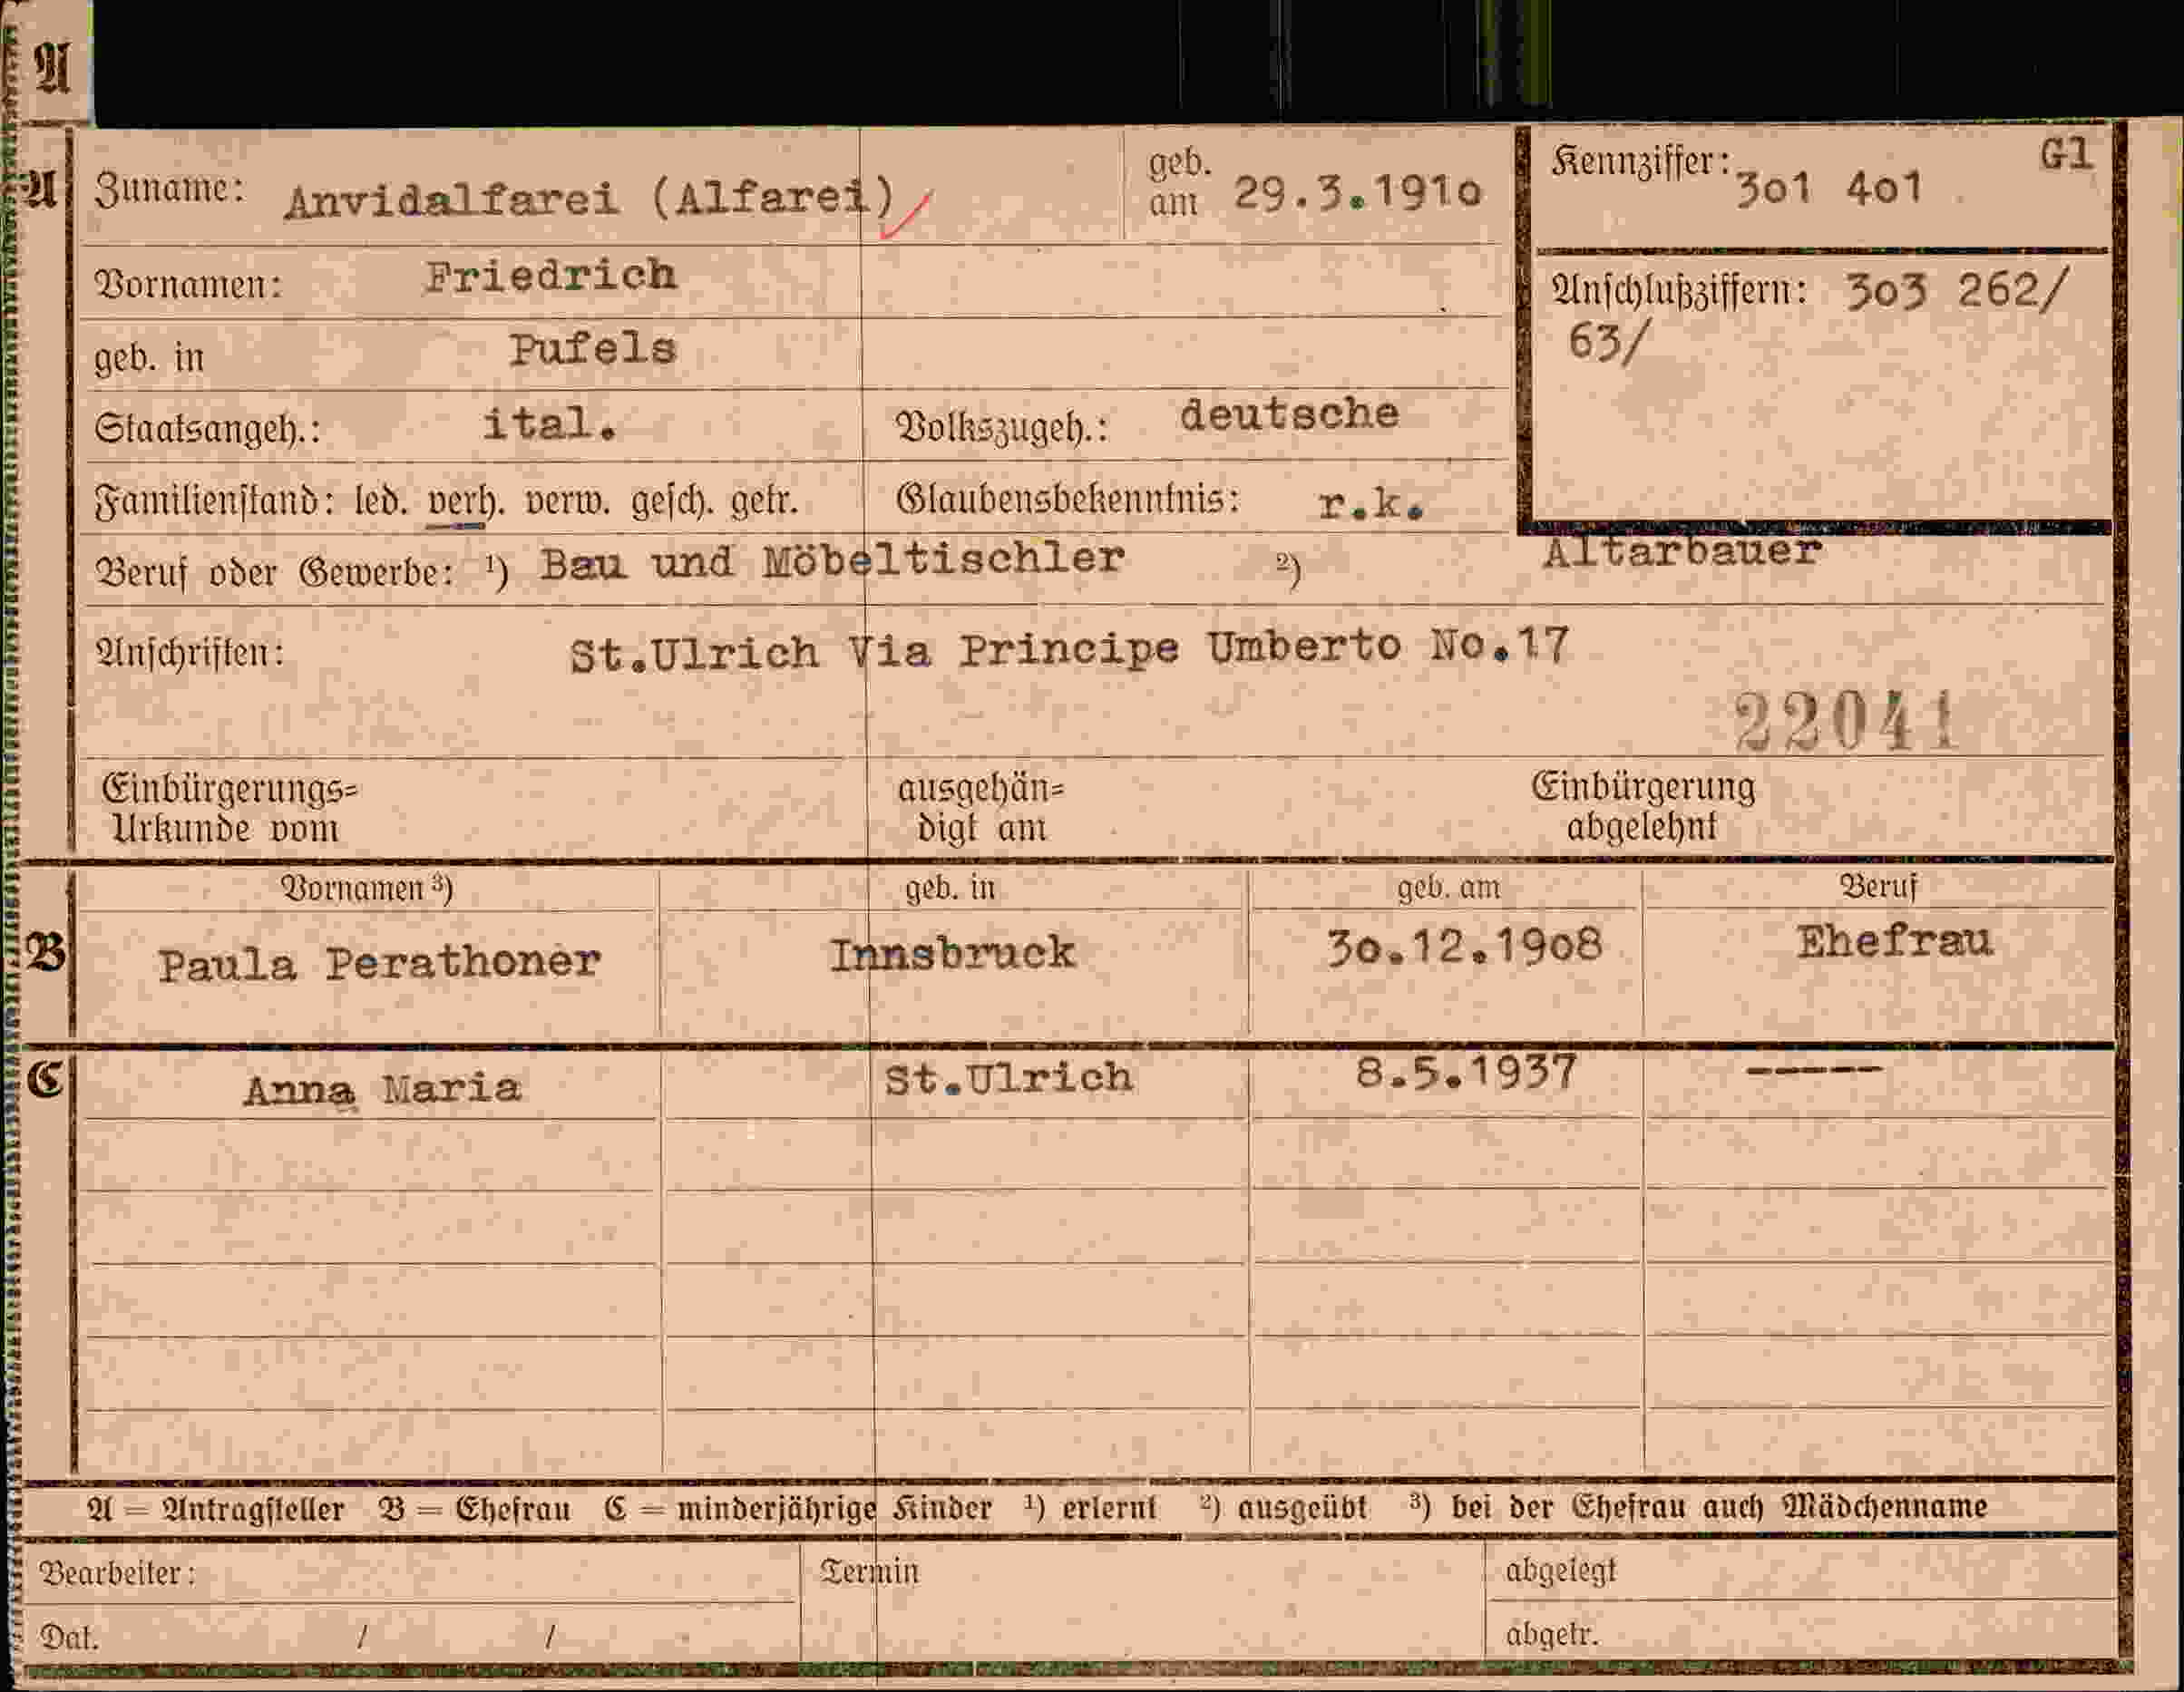 A
A Zuname: Anvidalfarei (Alfarei) geb. am 29.3.1910 Kennziffer: 301 401 Gl
Vornamen: Friedrich
Anschlußziffern: 303 262/
63/
geb. in Pufels
Staatsangeh.: ital. Volkszugeh.: deutsche
Familienstand: led. verh. verw. gesch. getr. Glaubensbekenntnis: r.k.
Beruf oder Gewerbe: ¹) Bau und Möbeltischler ²) Altarbauer
Anschriften: St.Ulrich Via Principe Umberto No.17
22041
Einbürgerungs= ausgehän= Einbürgerung
Urkunde vom digt am abgelehnt
Vornamen ³) geb. in geb. am Beruf
B Paula Perathoner Innsbruck 30.12.1908 Ehefrau
C Anna Maria St.Ulrich 8.5.1937 -----
A = Antragsteller B = Ehefrau C = minderjährige Kinder ¹) erlernt ²) ausgeübt ³) bei der Ehefrau auch Mädchenname
Bearbeiter: Termin abgelegt
Dat. / / abgetr.